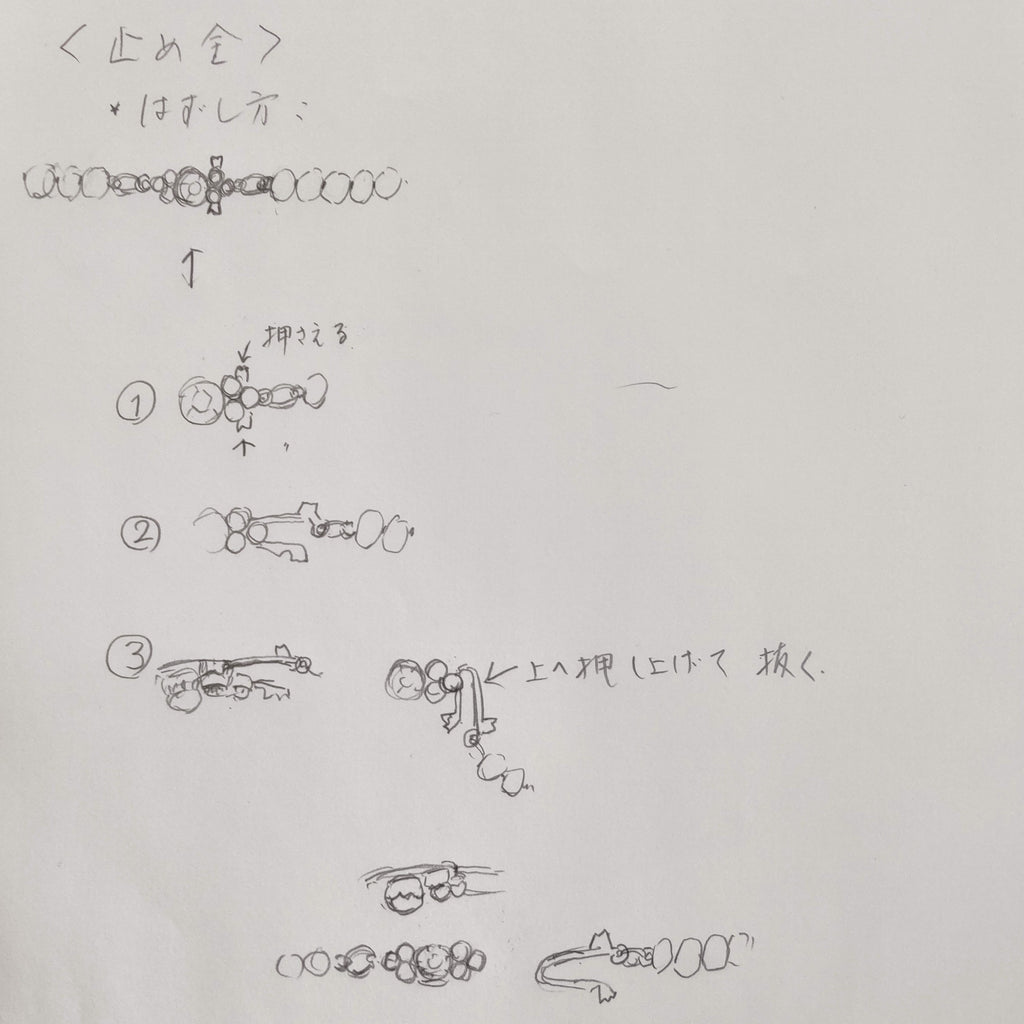 ＜止め金＞
* はずし方:
押さえる
①
〃
②
③
上へ押し上げて 抜く.